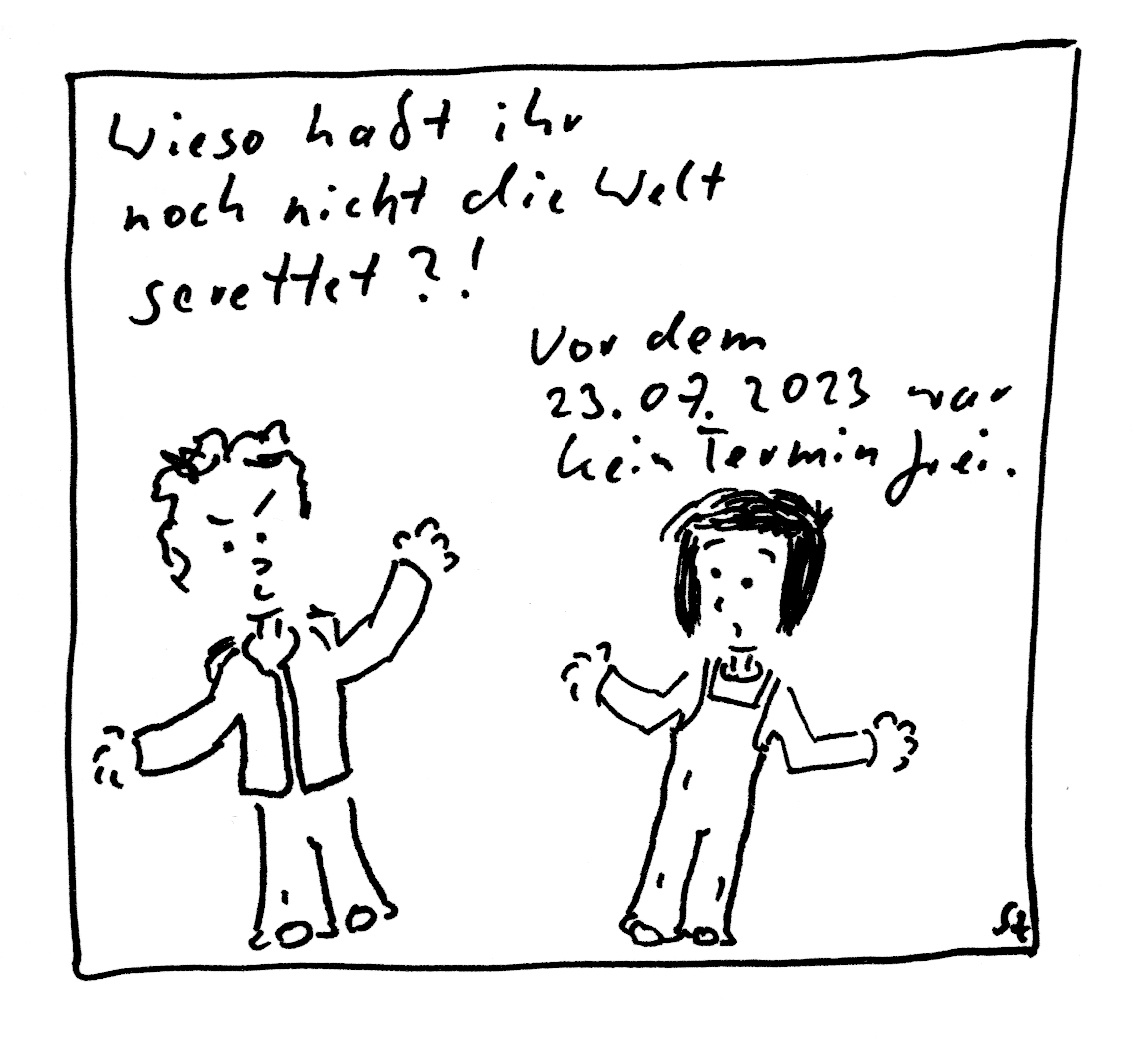 Wieso habt ihr
noch nicht die Welt
gerettet?!
Vor dem
23.07.2023 war
kein Termin frei.
St